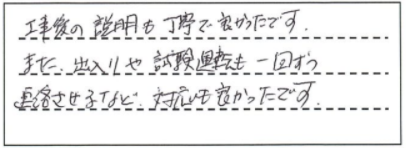 工事後の説明も丁寧で良かったです.
また、出入りや試験運転も一回ずつ
連絡させるなど、対応も良かったです.